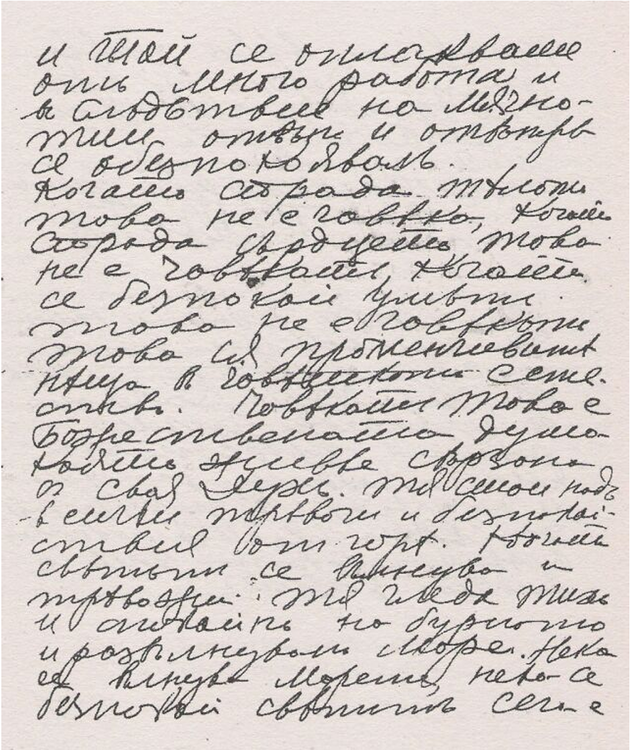 и Той се оплакваше
отъ много работа и
в следствие на мѫчно-
тии отвън и отвѫтрѣ
се обезпокоявалъ.
Когато страда тѣлото
това не е човѣка, когато
страда сърдцето, това
не е човѣкътъ, когато
се безпокои умътъ
това не е човѣкътъ
това сѫ променчивитѣ
нѣща в човѣшкото есте-
ство. Човѣкътъ това е
Божествената душа
която живѣе свързана
с своя Духъ. тя стои надъ
всички тревоги и безпокой-
ствия от горѣ. Когато
свѣтътъ се вълнува и
тревожи тя гледа тихо
и спокойно на бурното
и развълнувано море. Нека
се вълнува морето, нека се
безпокои свѣтътъ сега е